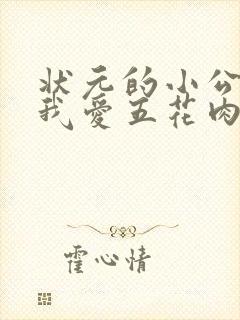 状元的小公
我爱五花肉
霍心情